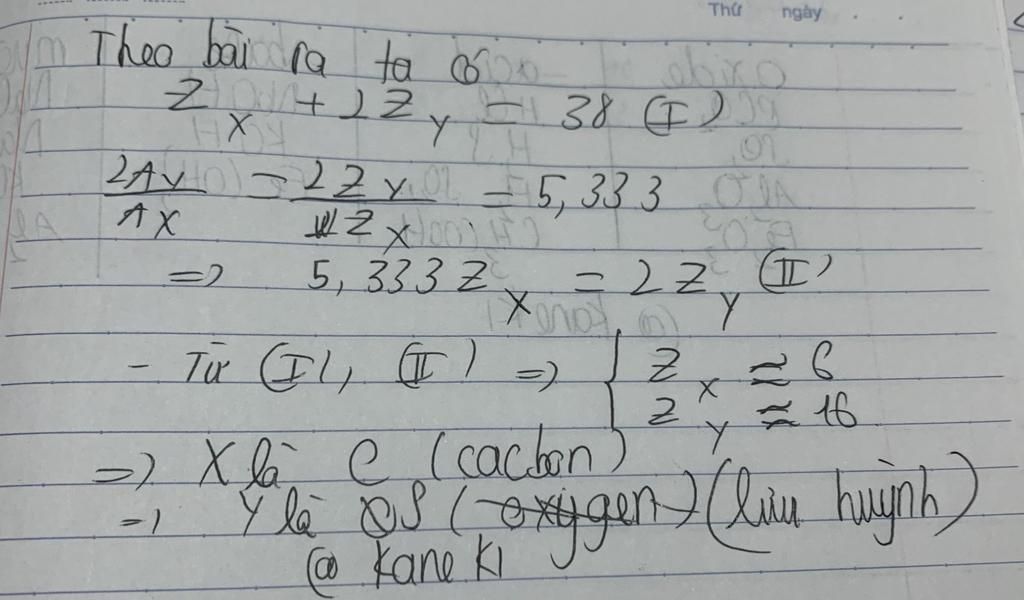 Thứ ngày
Theo bài ra ta có
Z_X + 2Z_Y = 38 (I)
2A_Y/A_X = 2Z_Y/Z_X = 5,333
=> 5,333 Z_X = 2Z_Y (II)
- Từ (I), (II) => { Z_X ≈ 6
Z_Y ≈ 16
=> X là C (cacbon)
=> Y là S (oxygen) (lưu huỳnh)
@ Kane Ki